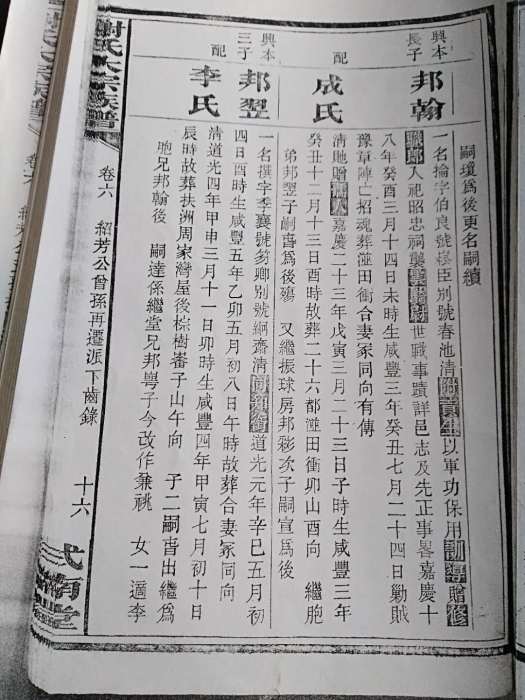 嗣璝爲後更名嗣續
興本長子
邦翰
一名掄字伯良號 臣別號春池清 生以軍功保用訓導贈修
職郎入祀昭忠祠襲雲騎尉世職事蹟詳邑志及先正事畧嘉慶十
八年癸酉三月十四日未時生咸豐三年癸丑七月二十四日勦賊
豫章陣亡招魂葬 田衝合妻冢同向有傳
配
成氏
清貤贈 人嘉慶二十三年戊寅三月二十三日子時生咸豐三年
癸丑十二月十三日酉時故葬二十六都 田衝卯山酉向 繼胞
弟邦翌子嗣 爲後殤 又繼振球房邦彩次子嗣宣爲後
興本三子
邦翌
一名撰字季襄號 卿別號絅齋清 銜道光元年辛巳五月初
四日酉時生咸豐五年乙卯五月初八日午時故葬合妻冢同向
配
李氏
清道光四年甲申三月十一日卯時生咸豐四年甲寅七月初十日
辰時故葬扶洲周家灣屋後棕樹 子山午向 子二嗣 出繼爲
胞兄邦翰後 嗣達係繼堂兄邦粵子今改作兼祧 女一適李
謝氏大宗族譜
卷六 紹芳公曾孫再遷派下齒錄
十六